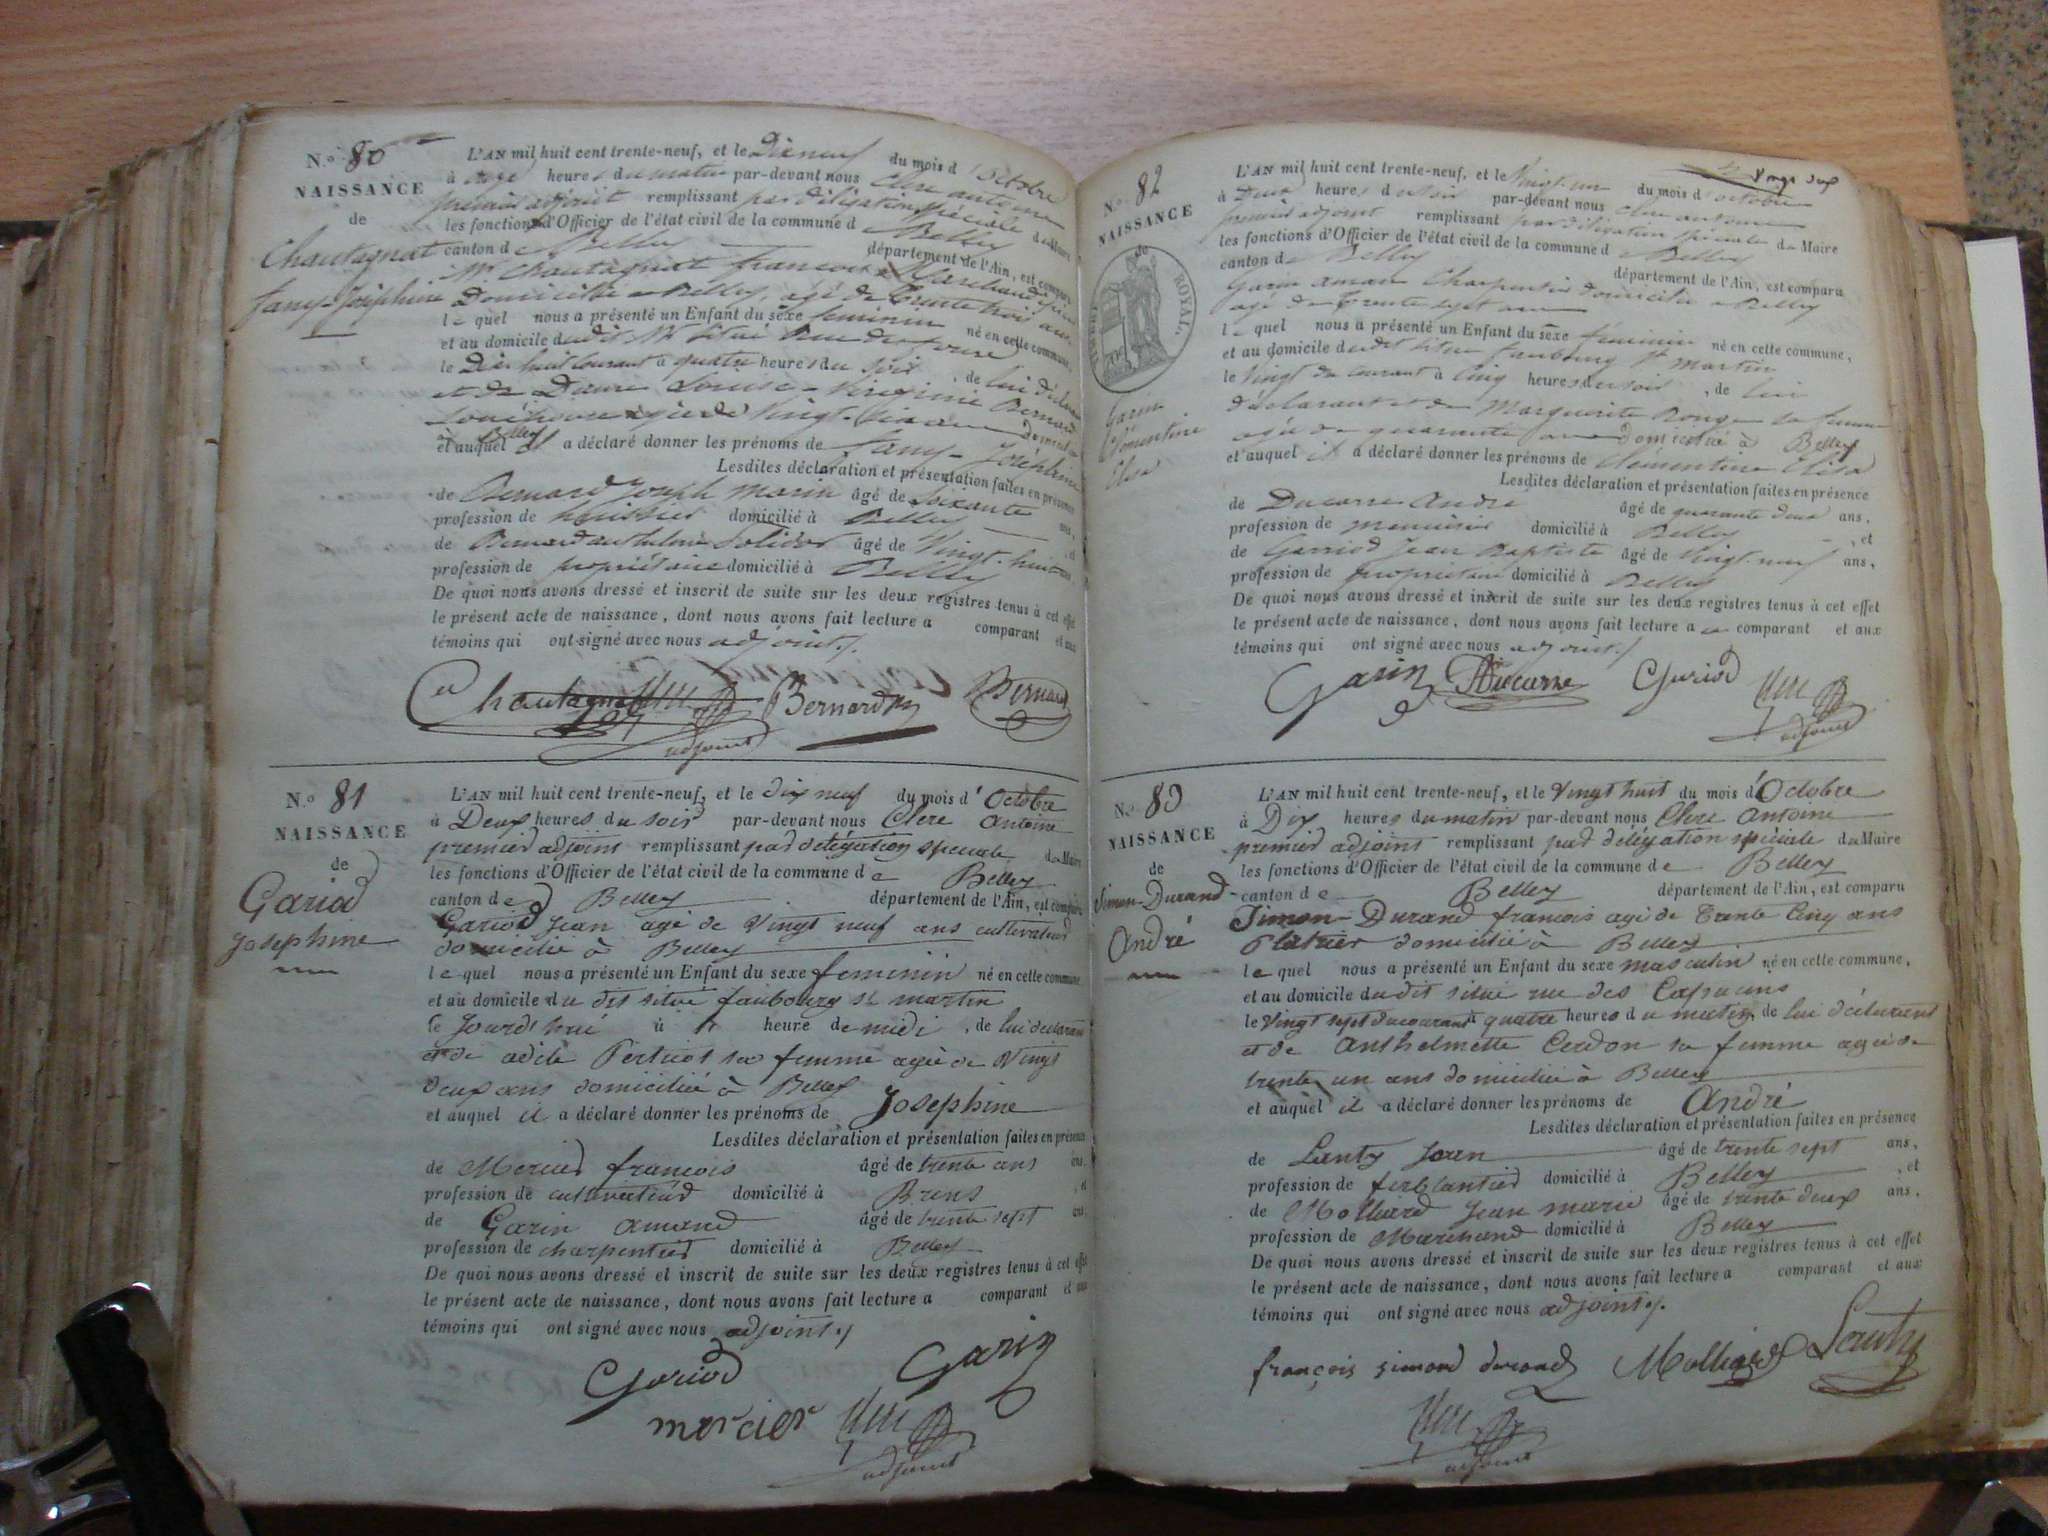 N.o 80
NAISSANCE
de
Chautagnat
fany-Joséphine
L'AN mil huit cent trente-neuf, et le Dix neuf du mois d'Octobre
à onze heures du matin par-devant nous Clerc antoine
premier adjoint remplissant par déligation spéciale du Maire
les fonctions d'Officier de l'état civil de la commune de Belley
canton de Belley département de l'Ain, est comparu
Mr Chautagnat francois Marchand
Domicilié a Belley, agé de trente trois ans
le quel nous a présenté un Enfant du sexe feminin né en cette commune,
et au domicile dudit Mr situé
le Dix huit courant à quatre heures du soir, de lui déclarant
et de Dame Louise-Virginie Bernard
son épouse agée de Vingt-
à Belley
et auquel il a déclaré donner les prénoms de fany-Joséphine
Lesdites déclaration et présentation faites en présence
de Bernard Joseph Marin âgé de Soixante ans,
profession de huissier domicilié à Belley, et
de Bernard anthelme âgé de Vingt-huit ans
profession de propriétaire domicilié à Belley
De quoi nous avons dressé et inscrit de suite sur les deux registres tenus à cet effet
le présent acte de naissance, dont nous avons fait lecture a comparant et aux
témoins qui ont signé avec nous adjoint./
Chautagnat Clerc Bernard Bernard
adjoint
N.o 81
NAISSANCE
de
Gariod
Josephine
L'AN mil huit cent trente-neuf, et le dix neuf du mois d'Octobre
à Deux heures du soir par-devant nous Clerc Antoine
premier adjoint remplissant par délégation speciale du Maire
les fonctions d'Officier de l'état civil de la commune de Belley
canton de Belley département de l'Ain, est comparu
Gariod Jean agé de Vingt neuf ans cultivateur
domicilié à Belley
le quel nous a présenté un Enfant du sexe feminin né en cette commune
et au domicile du dit situé faubourg st martin
le Jourd'hui à heure de midi, de lui déclarant
et de adéle sa femme agée de Vingt
deux ans domiciliée à Belley
et auquel il a déclaré donner les prénoms de Josephine
Lesdites déclaration et présentation faites en présence
de Mercier francois âgé de trente ans ans,
profession de cultivateur domicilié à Brens, et
de Garin amand âgé de trente sept ans,
profession de charpentier domicilié à Belley
De quoi nous avons dressé et inscrit de suite sur les deux registres tenus à cet effet
le présent acte de naissance, dont nous avons fait lecture a comparant et aux
témoins qui ont signé avec nous adjoint./
Gariod Garin
mercier Clerc
adjoint
N.o 82
NAISSANCE
de
TIMBRE ROYAL
Garin
Clémentine
Elisa
L'AN mil huit cent trente-neuf, et le Vingt-un du mois d'octobre
à Deux heures du soir par-devant nous Clerc antoine
premier adjoint remplissant par déligation spéciale du Maire
les fonctions d'Officier de l'état civil de la commune de Belley
canton de Belley département de l'Ain, est comparu
Garin aman Charpentier domicilié a Belley
agé de trente sept ans
le quel nous a présenté un Enfant du sexe féminin né en cette commune,
et au domicile dudit situé faubourg St martin
le Vingt du courant à Cinq heures du soir, de lui
déclarant et de Marguerite Ronge sa femme
agée de quarante ans domiciliée à Belley
et auquel il a déclaré donner les prénoms de Clémentine Elisa
Lesdites déclaration et présentation faites en présence
de Ducarre André âgé de quarante deux ans,
profession de menuisier domicilié à Belley, et
de Garriod Jean Baptiste âgé de Vingt-neuf ans,
profession de propriétaire domicilié à Belley
De quoi nous avons dressé et inscrit de suite sur les deux registres tenus à cet effet
le présent acte de naissance, dont nous avons fait lecture a u comparant et aux
témoins qui ont signé avec nous adjoint./
Garin Ducarre Gariod Clerc
adjoint
N.o 83
NAISSANCE
de
Simon-Durand
André
L'AN mil huit cent trente-neuf, et le Vingt huit du mois d'Octobre
à Dix heures du matin par-devant nous Clerc Antoine
premier adjoint remplissant par délégation spéciale du Maire
les fonctions d'Officier de l'état civil de la commune de Belley
canton de Belley département de l'Ain, est comparu
Simon-Durand francois agé de trente cinq ans
Platrier domicilié à Belley
le quel nous a présenté un Enfant du sexe masculin né en cette commune,
et au domicile dudit situé rue des Capucins
le Vingt sept du courant à quatre heures du matin, de lui déclarant
et de Anthelmette Cerdon sa femme agée de
trente un ans domiciliée à Belley
et auquel il a déclaré donner les prénoms de André
Lesdites déclaration et présentation faites en présence
de Lanty Jean âgé de trente sept ans,
profession de ferblantier domicilié à Belley, et
de Molliard Jean marie âgé de trente deux ans,
profession de Marchand domicilié à Belley
De quoi nous avons dressé et inscrit de suite sur les deux registres tenus à cet effet
le présent acte de naissance, dont nous avons fait lecture a comparant et aux
témoins qui ont signé avec nous adjoint./
françois simond durand Molliard Lanty
Clerc
adjoint